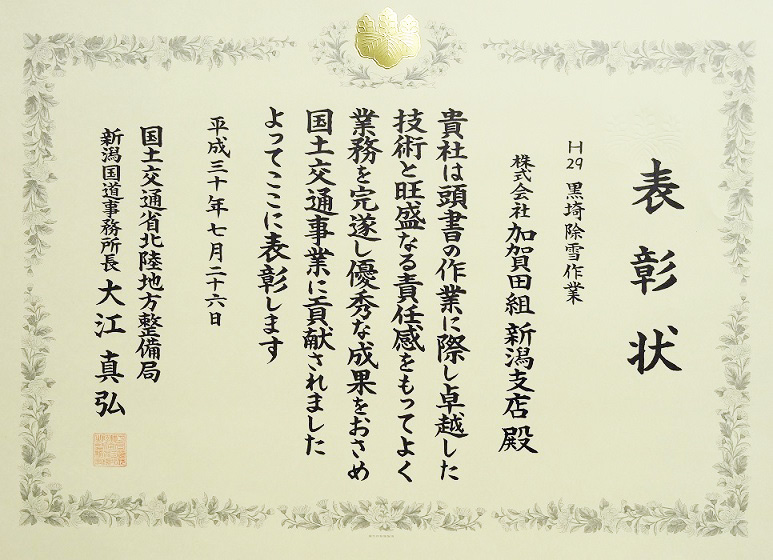 表彰状
H29 黒埼除雪作業
株式会社 加賀田組 新潟支店 殿
貴社は頭書の作業に際し卓越した
技術と旺盛なる責任感をもってよく
業務を完遂し優秀な成果をおさめ
国土交通事業に貢献されました
よってここに表彰します
平成三十年七月二十六日
国土交通省北陸地方整備局
新潟国道事務所長 大江 真弘